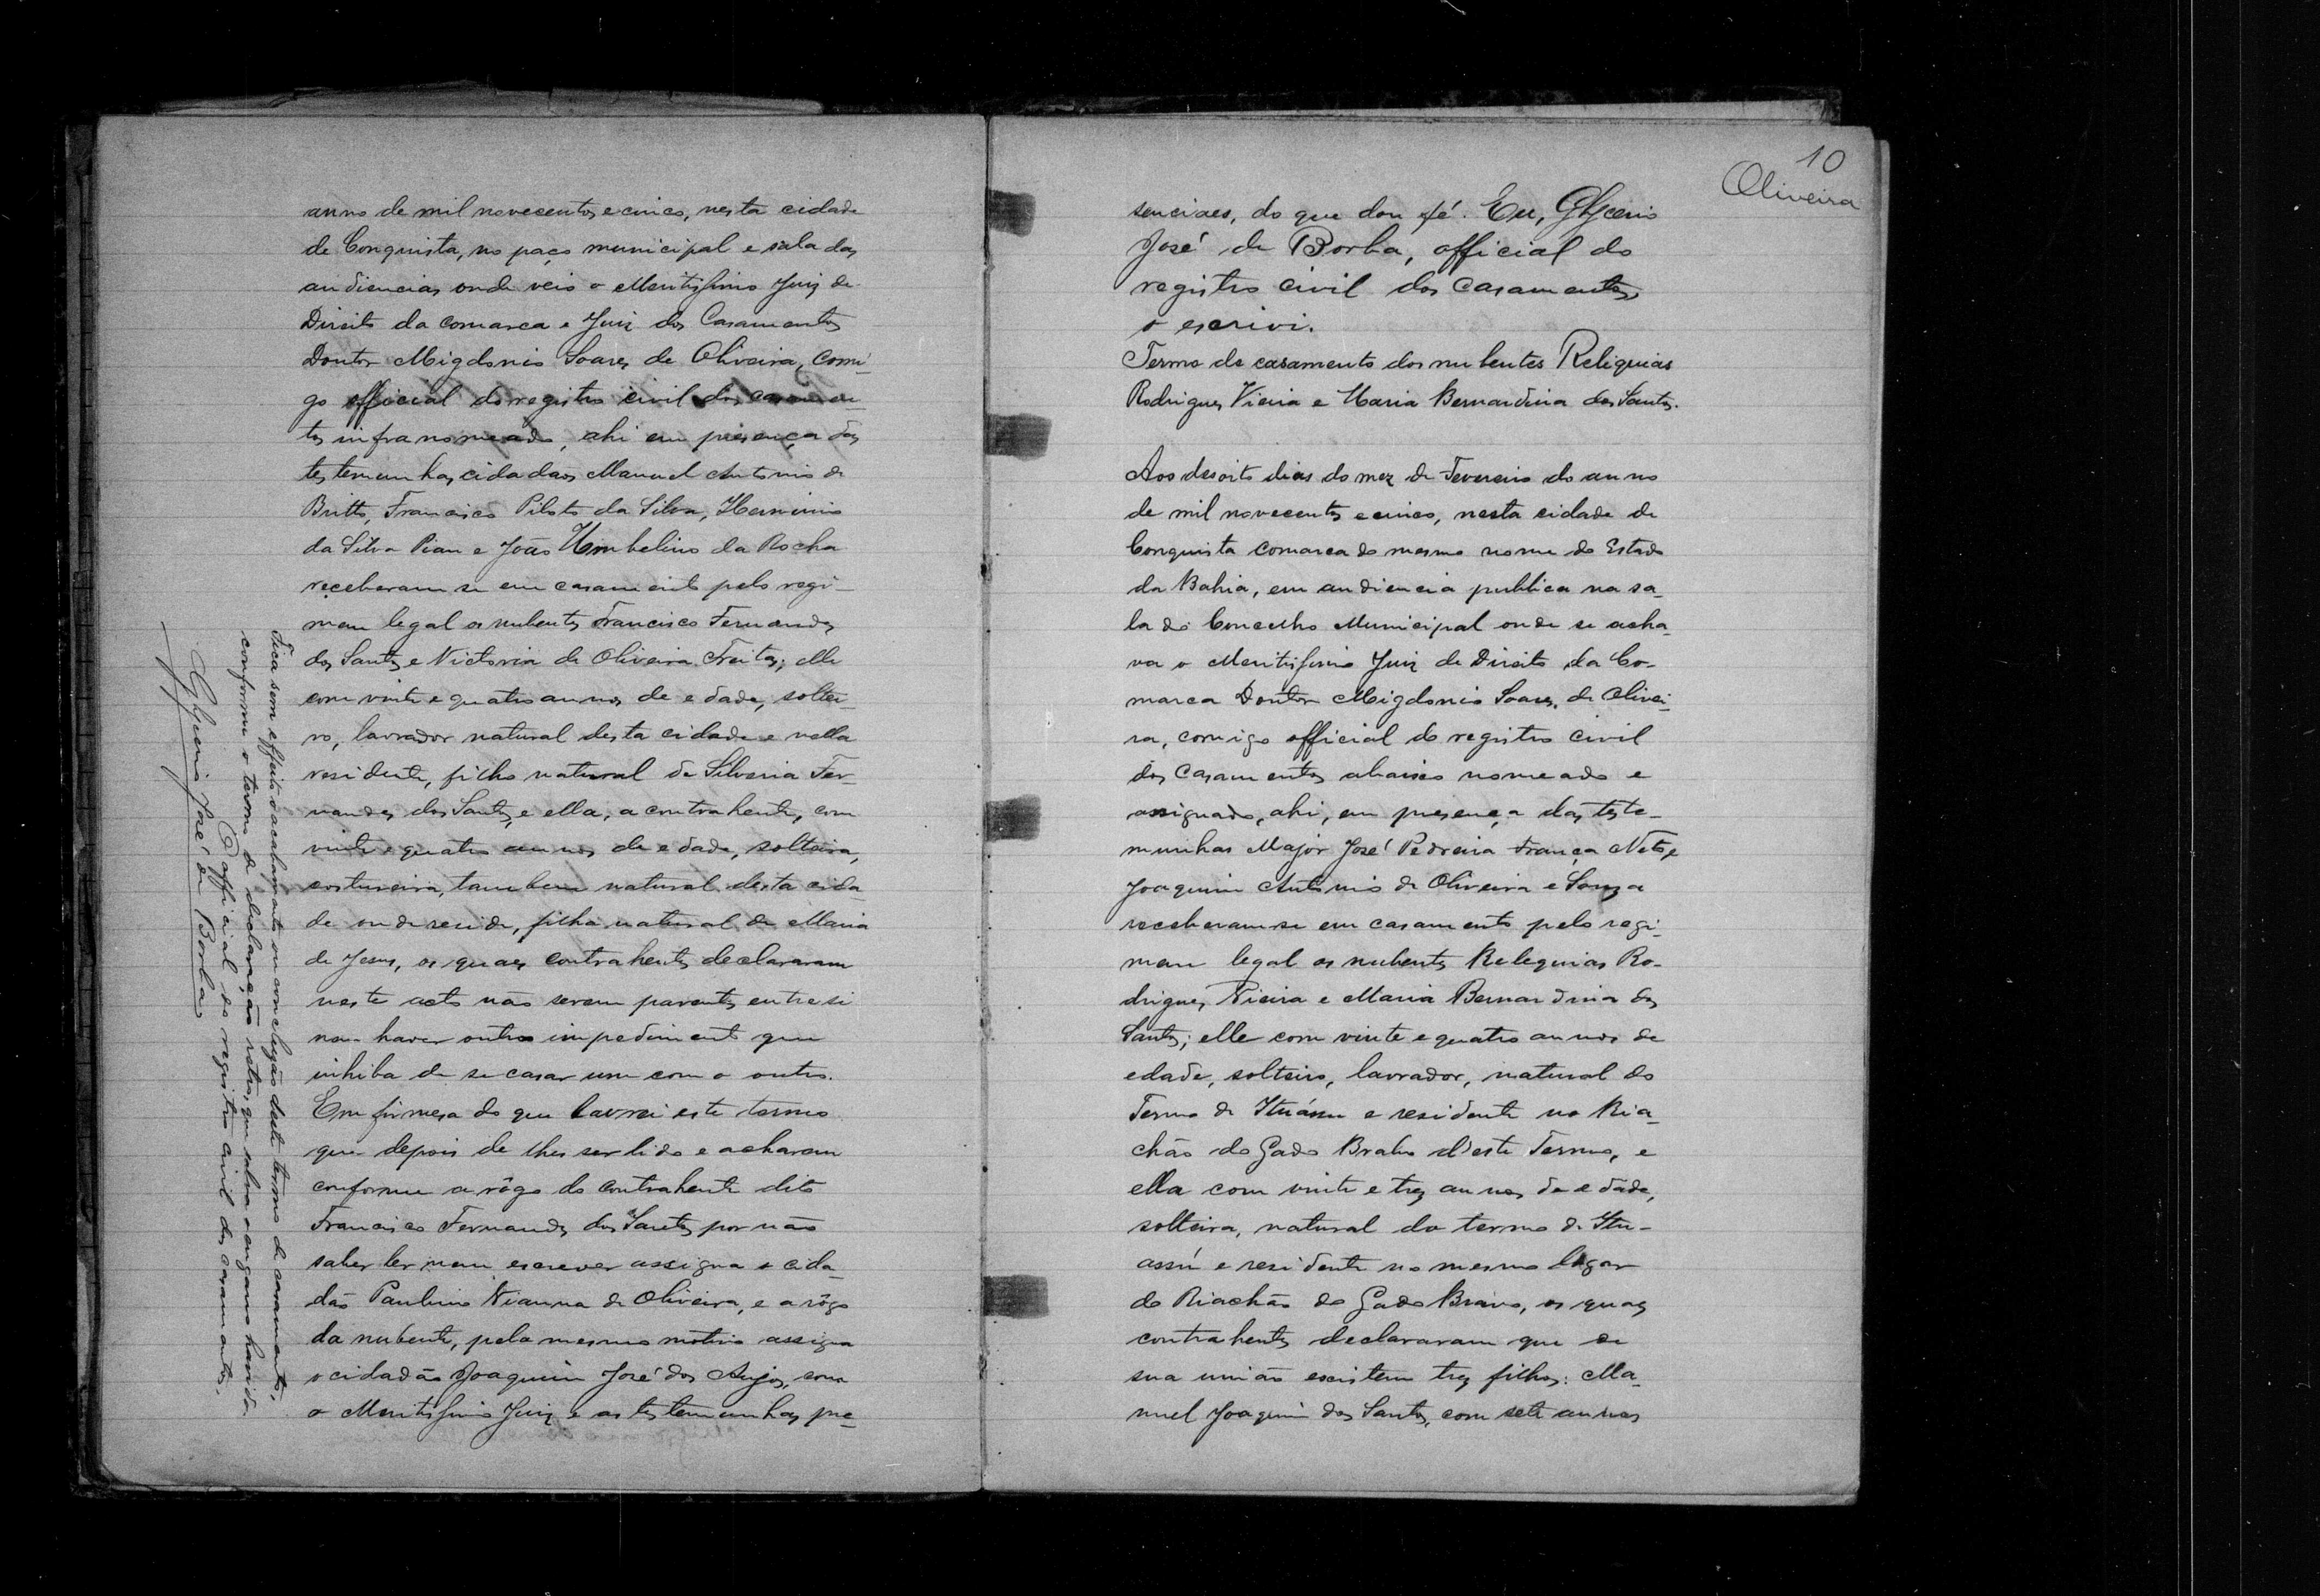 anno de mil novecentos e cinco, nesta cidade
de Conquista, no paço municipal e sala das
audiencias onde veio o Meritissimo Juiz de
Direito da Comarca e Juiz dos Casamentos
Doutor Migdonio Soares de Oliveira, comi-
go official do registro civil dos casamen-
tos infra nomeado, ahi em presença das
testemunhas cidadãos Manuel Antonio de
Britto, Francisco Piloto da Silva, Herminio
da Silva Pian e João Umbelino da Rocha
receberam se em casamento pelo regi-
men legal os nubentes Francisco Fernandes
dos Santos e Victoria de Oliveira Freitas; elle
com vinte e quatro annos de edade, soltei-
ro, lavrador natural desta cidade e nella
residente, filho natural de Silveria Fer-
nandes dos Santos, e ella, a contrahente, com
vinte e quatro annos de edade, solteira,
costureira, tambem natural desta cida-
de onde reside, filha natural de Maria
de Jesus, os quaes contrahentes declararam
neste acto não serem parentes entre si
nem haver outro impedimento que
inhiba de se casar um com o outro.
Em firmesa do que lavrei este termo
que depois de lhes ser lido e acharam
conforme a rôgo do contrahente dito
Francisco Fernandes dos Santos por não
saber ler nem escrever assigna o cida-
dão Paulino Vianna de Oliveira, e a rôgo
da nubente, pelo mesmo motivo assigna
o cidadão Joaquim José dos Anjos, com
o Meritissimo Juiz e as testemunhas pre-
Fica sem effeito o acabamento ou conclusão deste termo de casamento,
conforme o termo de declaração retro, que salva o engano havido.
O official do registro civil dos casamentos,
Glycerio José de Borba
10
Oliveira
senciaes, do que dou fé. Eu, Glycerio
José de Borba, official do
registro civil dos casamentos,
o escrivi.
Termo de casamento dos nubentes Reliquias
Rodrigues Vieira e Maria Bernardina dos Santos.
Aos desoito dias do mez de Fevereiro do anno
de mil novecentos e cinco, nesta cidade de
Conquista comarca do mesmo nome do Estado
da Bahia, em audiencia publica na sa-
la do Concelho Municipal onde se acha-
va o Meritissimo Juiz de Direito da Co-
marca Doutor Migdonio Soares de Olivei-
ra, comigo official do registro civil
dos Casamentos abaixo nomeado e
assignado, ahi, em presença das teste-
munhas Major José Pedreira França Neto, e
Joaquim Antonio de Oliveira e Souza
receberam-se em casamento pelo regi-
men legal os nubentes Relequias Ro-
drigues Vieira e Maria Bernardina dos
Santos; elle com vinte e quatro annos de
edade, solteiro, lavrador, natural do
Termo de Ituássu e residente no Ria-
chão do Gado Bravo d'este Termo, e
ella com vinte e tres annos de edade,
solteira, natural do termo de Itu-
assú e residente no mesmo lugar
do Riachão do Gado Bravo, os quaes
contrahentes declararam que de
sua união existem tres filhos: Ma-
nuel Joaquim dos Santos, com sete annos